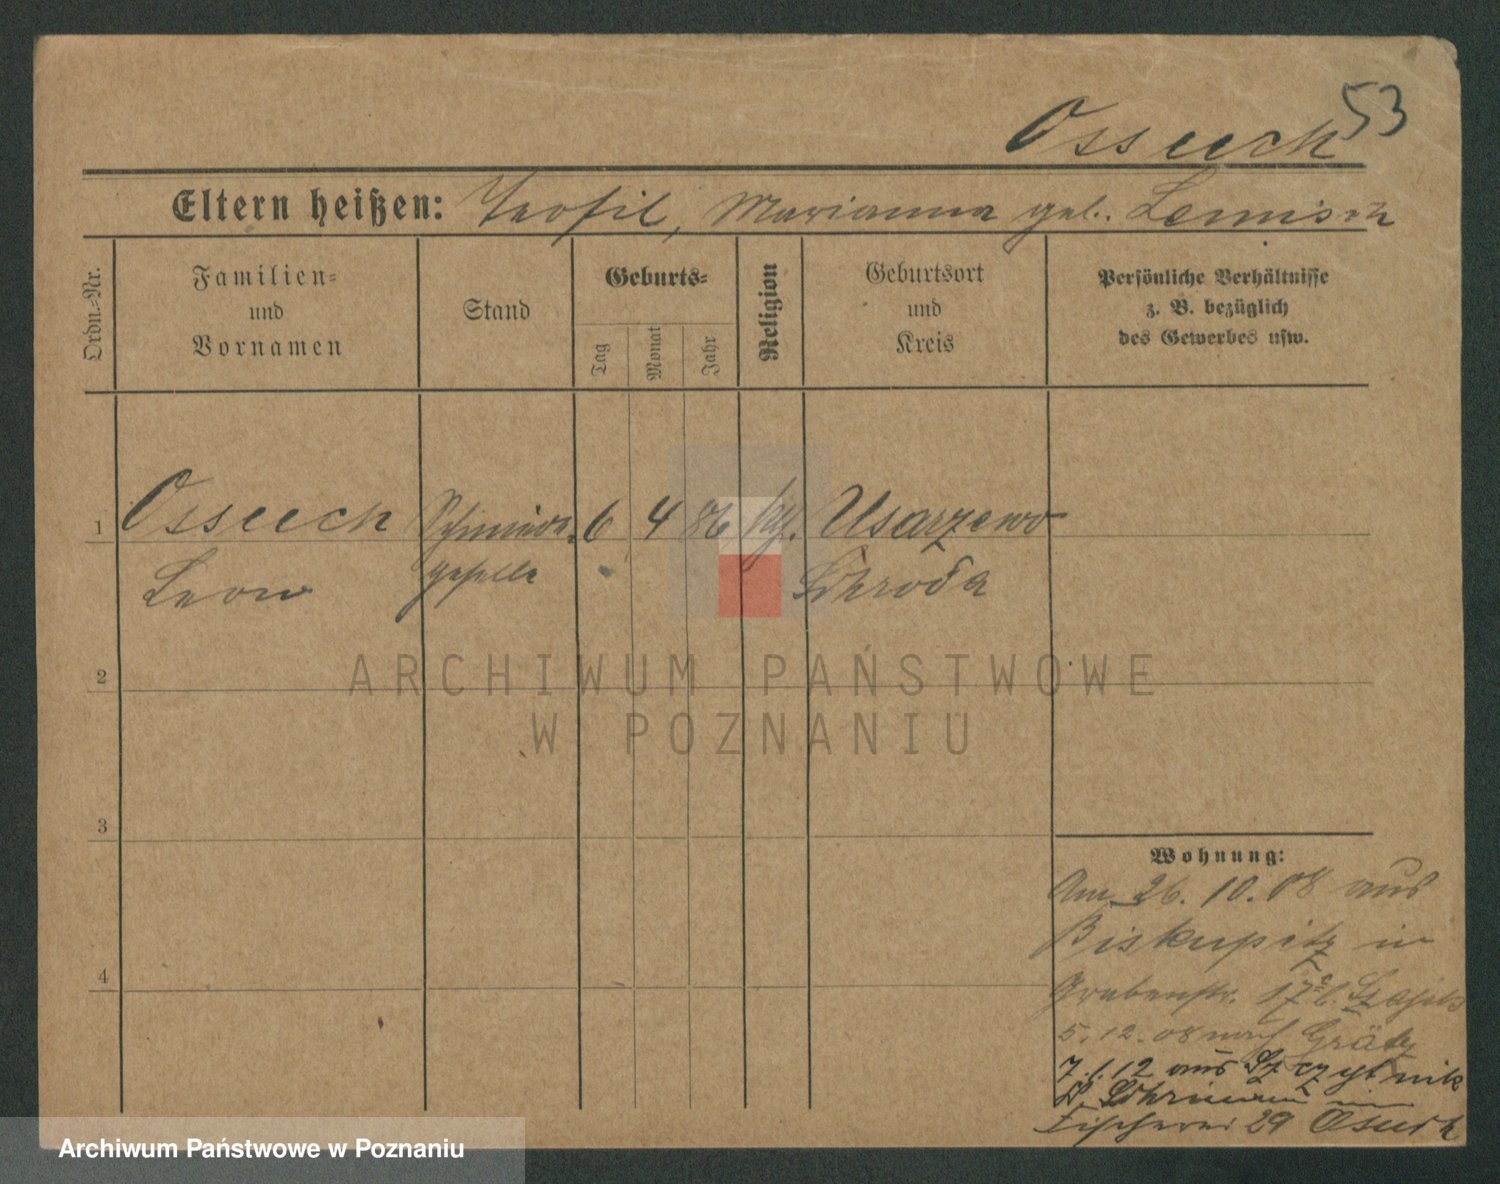 53
Ossuch
Eltern heißen: Teofil, Marianna geb.
Ordn.-Nr.
Familien-
und
Vornamen
Stand
Geburts-
Tag
Monat
Jahr
Religion
Geburtsort
und
Kreis
Persönliche Verhältnisse
z. B. bezüglich
des Gewerbes usw.
1 Ossuch Schmiede- 6 4 86 kth. Usarzewo
Leon geselle Schroda
ARCHIWUM PAŃSTWOWE
W POZNANIU
2
3
4
Wohnung:
Am 26. 10. 08 aus
Biskupitz in
Grabenstr. 17
5. 12. 08 nach Grätz
7. 1. 12 aus Szczytnik
Fischerei 29
Archiwum Państwowe w Poznaniu